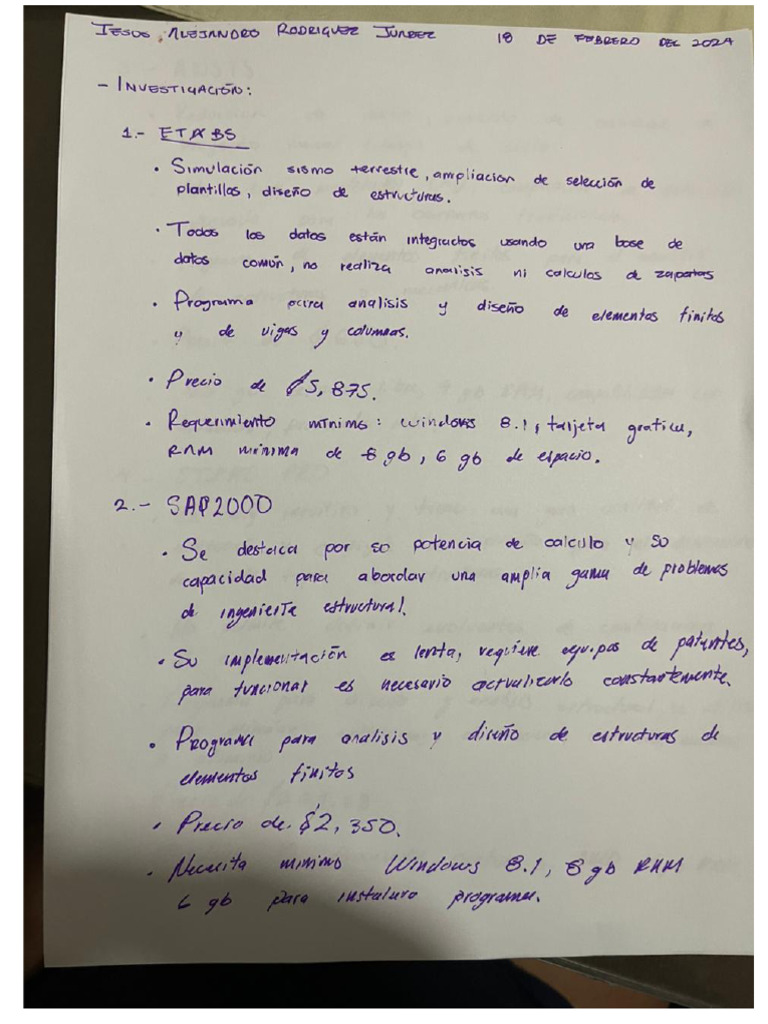 JESUS ALEJANDRO RODRIGUEZ JUAREZ 18 DE FEBRERO DEL 2024
- INVESTIGACIÓN:
1.- ETABS
• Simulación sismo terrestre, ampliacion de selección de
plantillas, diseño de estructuras.
• Todos los datos están integractos usando una base de
datos común, no realiza analisis ni calculos de zapatas
• Programa para analisis y diseño de elementos finitos
y de vigas y columnas.
• Precio de $5,875.
• Requerimiento mínimo: windows 8.1, tarjeta grafica,
RAM mínima de 8 gb, 6 gb de espacio.
2.- SAP2000
• Se destaca por so potencia de calculo y so
capacidad para abordar una amplia gama de problemas
de ingeniería estructural.
• Su implementación es lenta, requiere equipos de patentes,
para funcionar es necesario actualizarlo constantemente.
• Programa para analisis y diseño de estructuras de
elementos finitos
• Precio de $2,350.
• Necesita minimo Windows 8.1, 8 gb RAM
6 gb para instalaro programa.